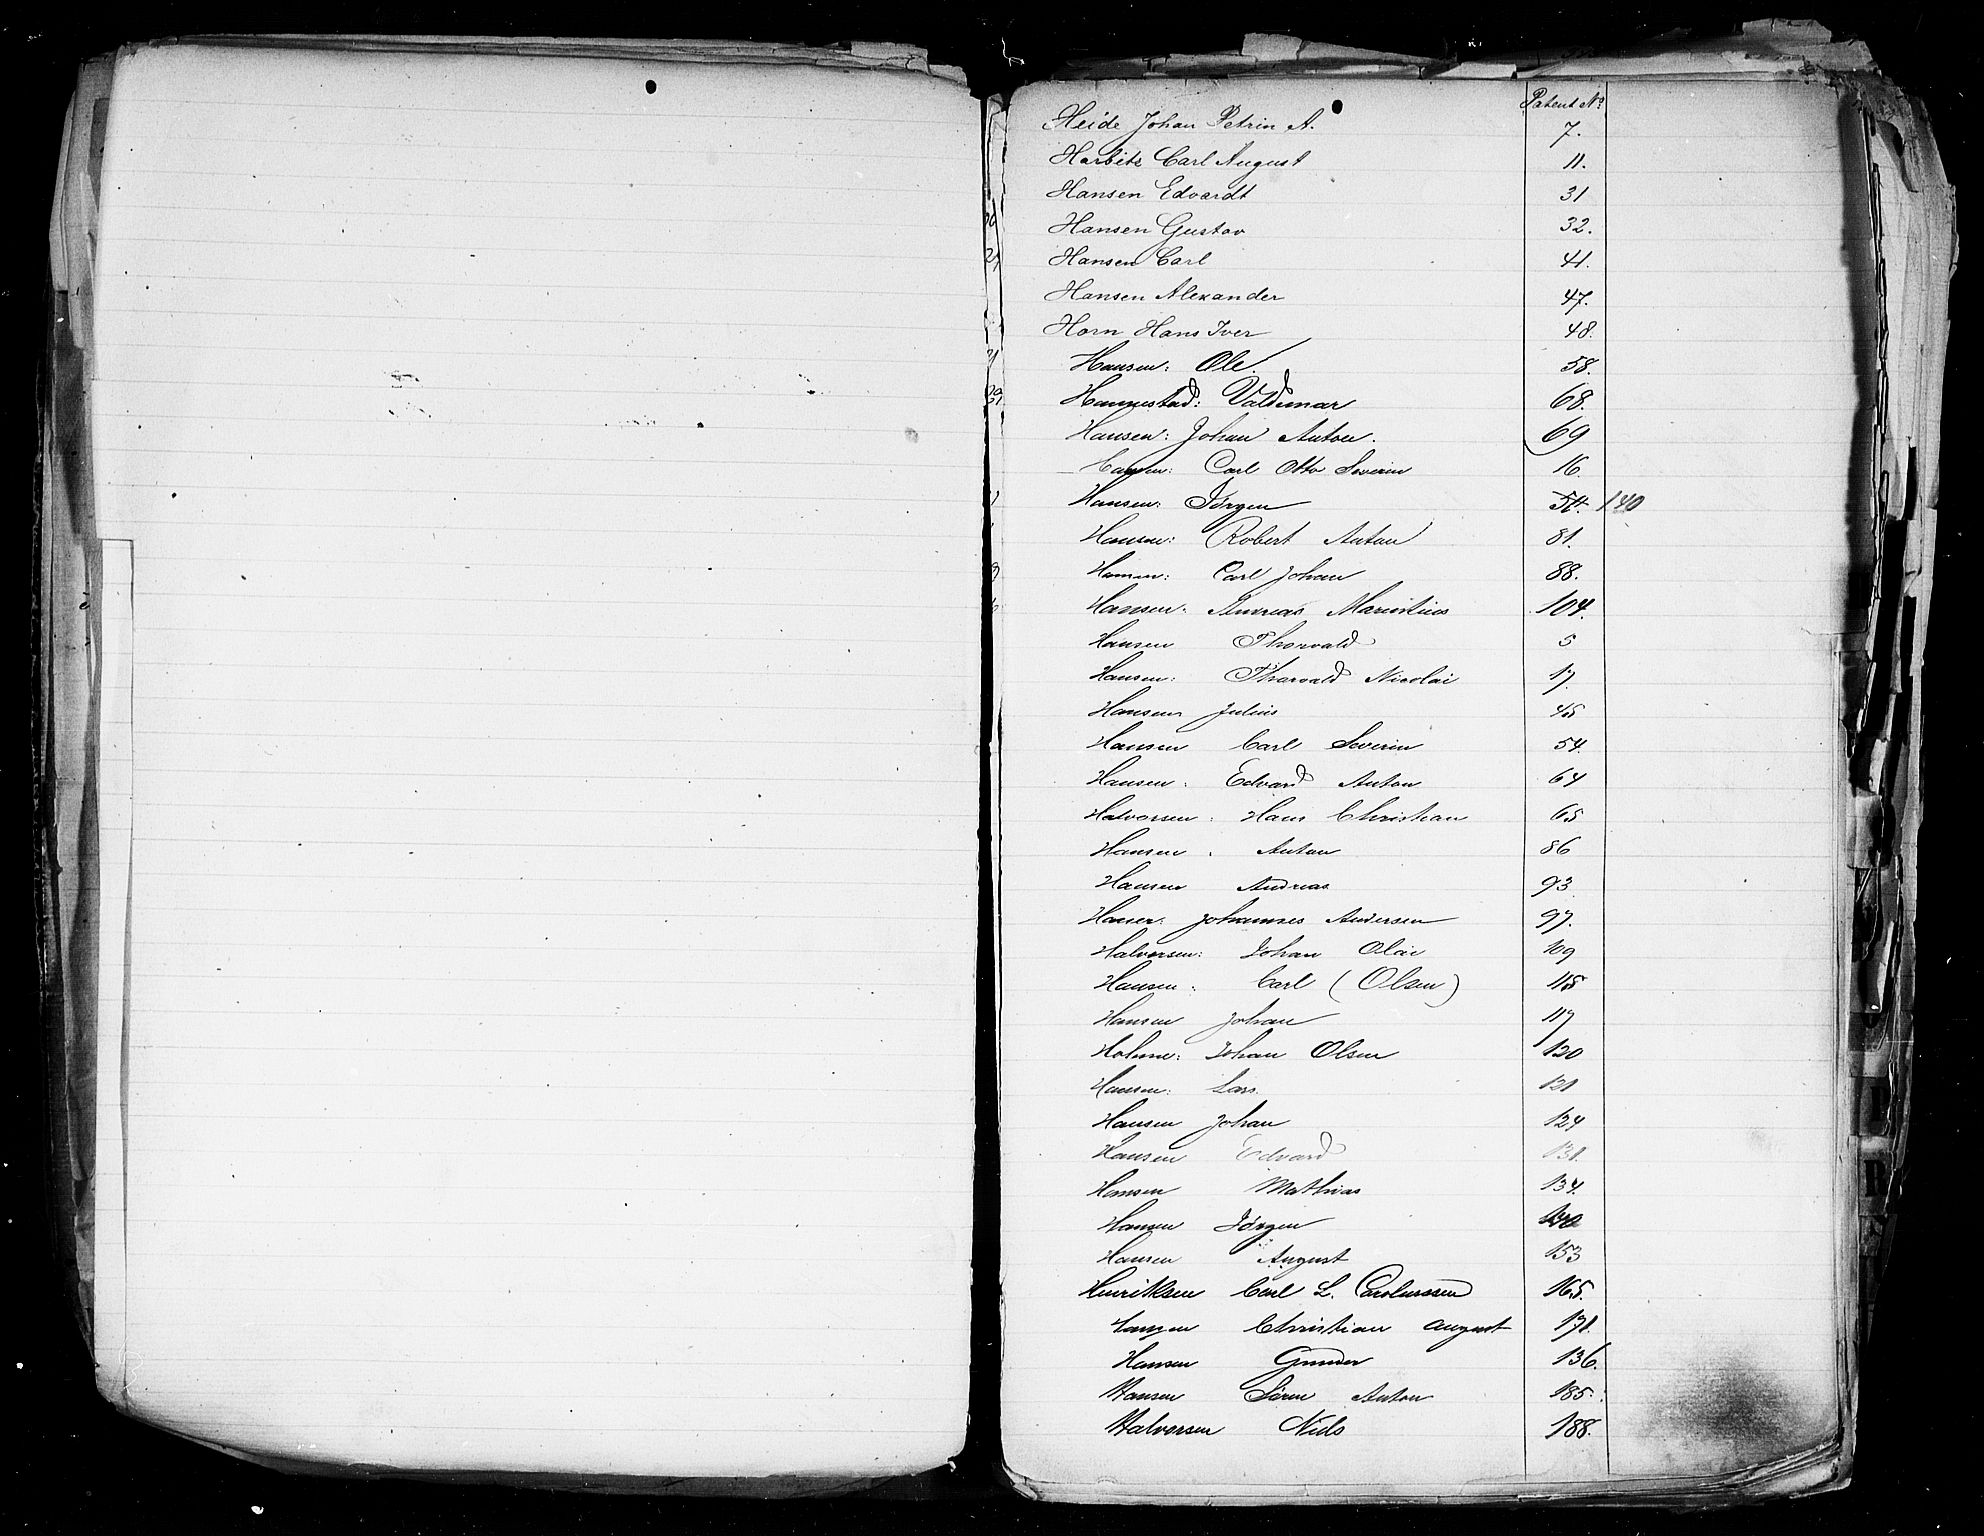 Patent No
Heide Johan Petrin A. 7.
Harbitz Carl August 11.
Hansen Edvardt 31
Hansen Gustav 32.
Hansen Carl 41.
Hansen Alexander 47.
Horn Hans Iver 48.
Hansen: Ole. 58.
Hannestad: Valdemar 68.
Hansen: Johan Anton. 69
Hansen: Carl Otto Severin 16.
Hansen: Jörgen 54. 140
Hansen: Robert Anton 81.
Hansen: Carl Johan 88.
Hansen: Andreas Marintius 104.
Hansen Thorvald 5
Hansen: Thorvald Nicolai 17.
Hansen Julius 45
Hansen Carl Severin 54.
Hansen: Edvard Anton 64
Halvorsen: Hans Christian 65
Hansen. Anton 86
Hansen Andreas 93.
Hansen: Johannes Andersen 97.
Halvorsen: Johan Olai 109
Hansen: Carl (Olsen) 115
Hansen Johan 117
Holme: Johan Olsen 120
Hansen: Lars. 121
Hansen Johan 124
Hansen Edvard 131.
Hansen Mathias 134.
Hansen Jörgen 140
Hansen August 153
Henriksen Carl L. Carolussen 165.
Hansen Christian August 171.
Hansen Gunder 136.
Hansen Sören Anton 185.
Halvorsen Nils 188.